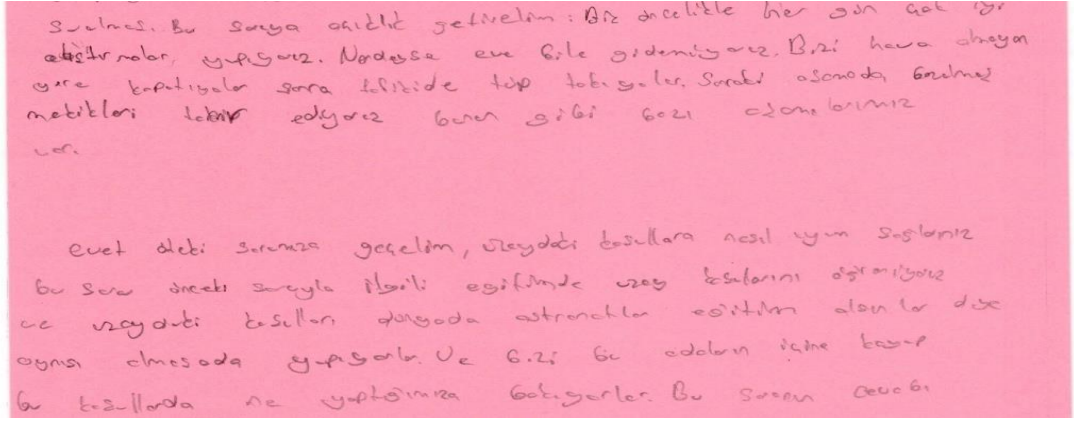 Bu soruya açıklık getirelim: Biz öncelikle her gün çok iyi
yapıyoruz. Nerdeyse eve bile gidemiyoruz. Bizi hava almayan
yere kapatıyolar sonra tüp takıyolar. Sonraki aşamada bozulmaş
mekikleri tamir ediyoruz bunun gibi bazı aşamalarımız
var.
evet öteki sorumuza geçelim, uzaydaki koşullara nasıl uyum sağlarız
bu soru önceki soruyla ilgili eğitimde uzay koşularını öğreniyoruz
ve uzaydaki koşulları dünyada astronotlar eğitim alsınlar diye
aynısı olmasada yapıyorlar. Ve bizi bu odaların içine koyup
bu koşullarda ne yaptığımıza bakıyorlar. Bu sorunun cevabı